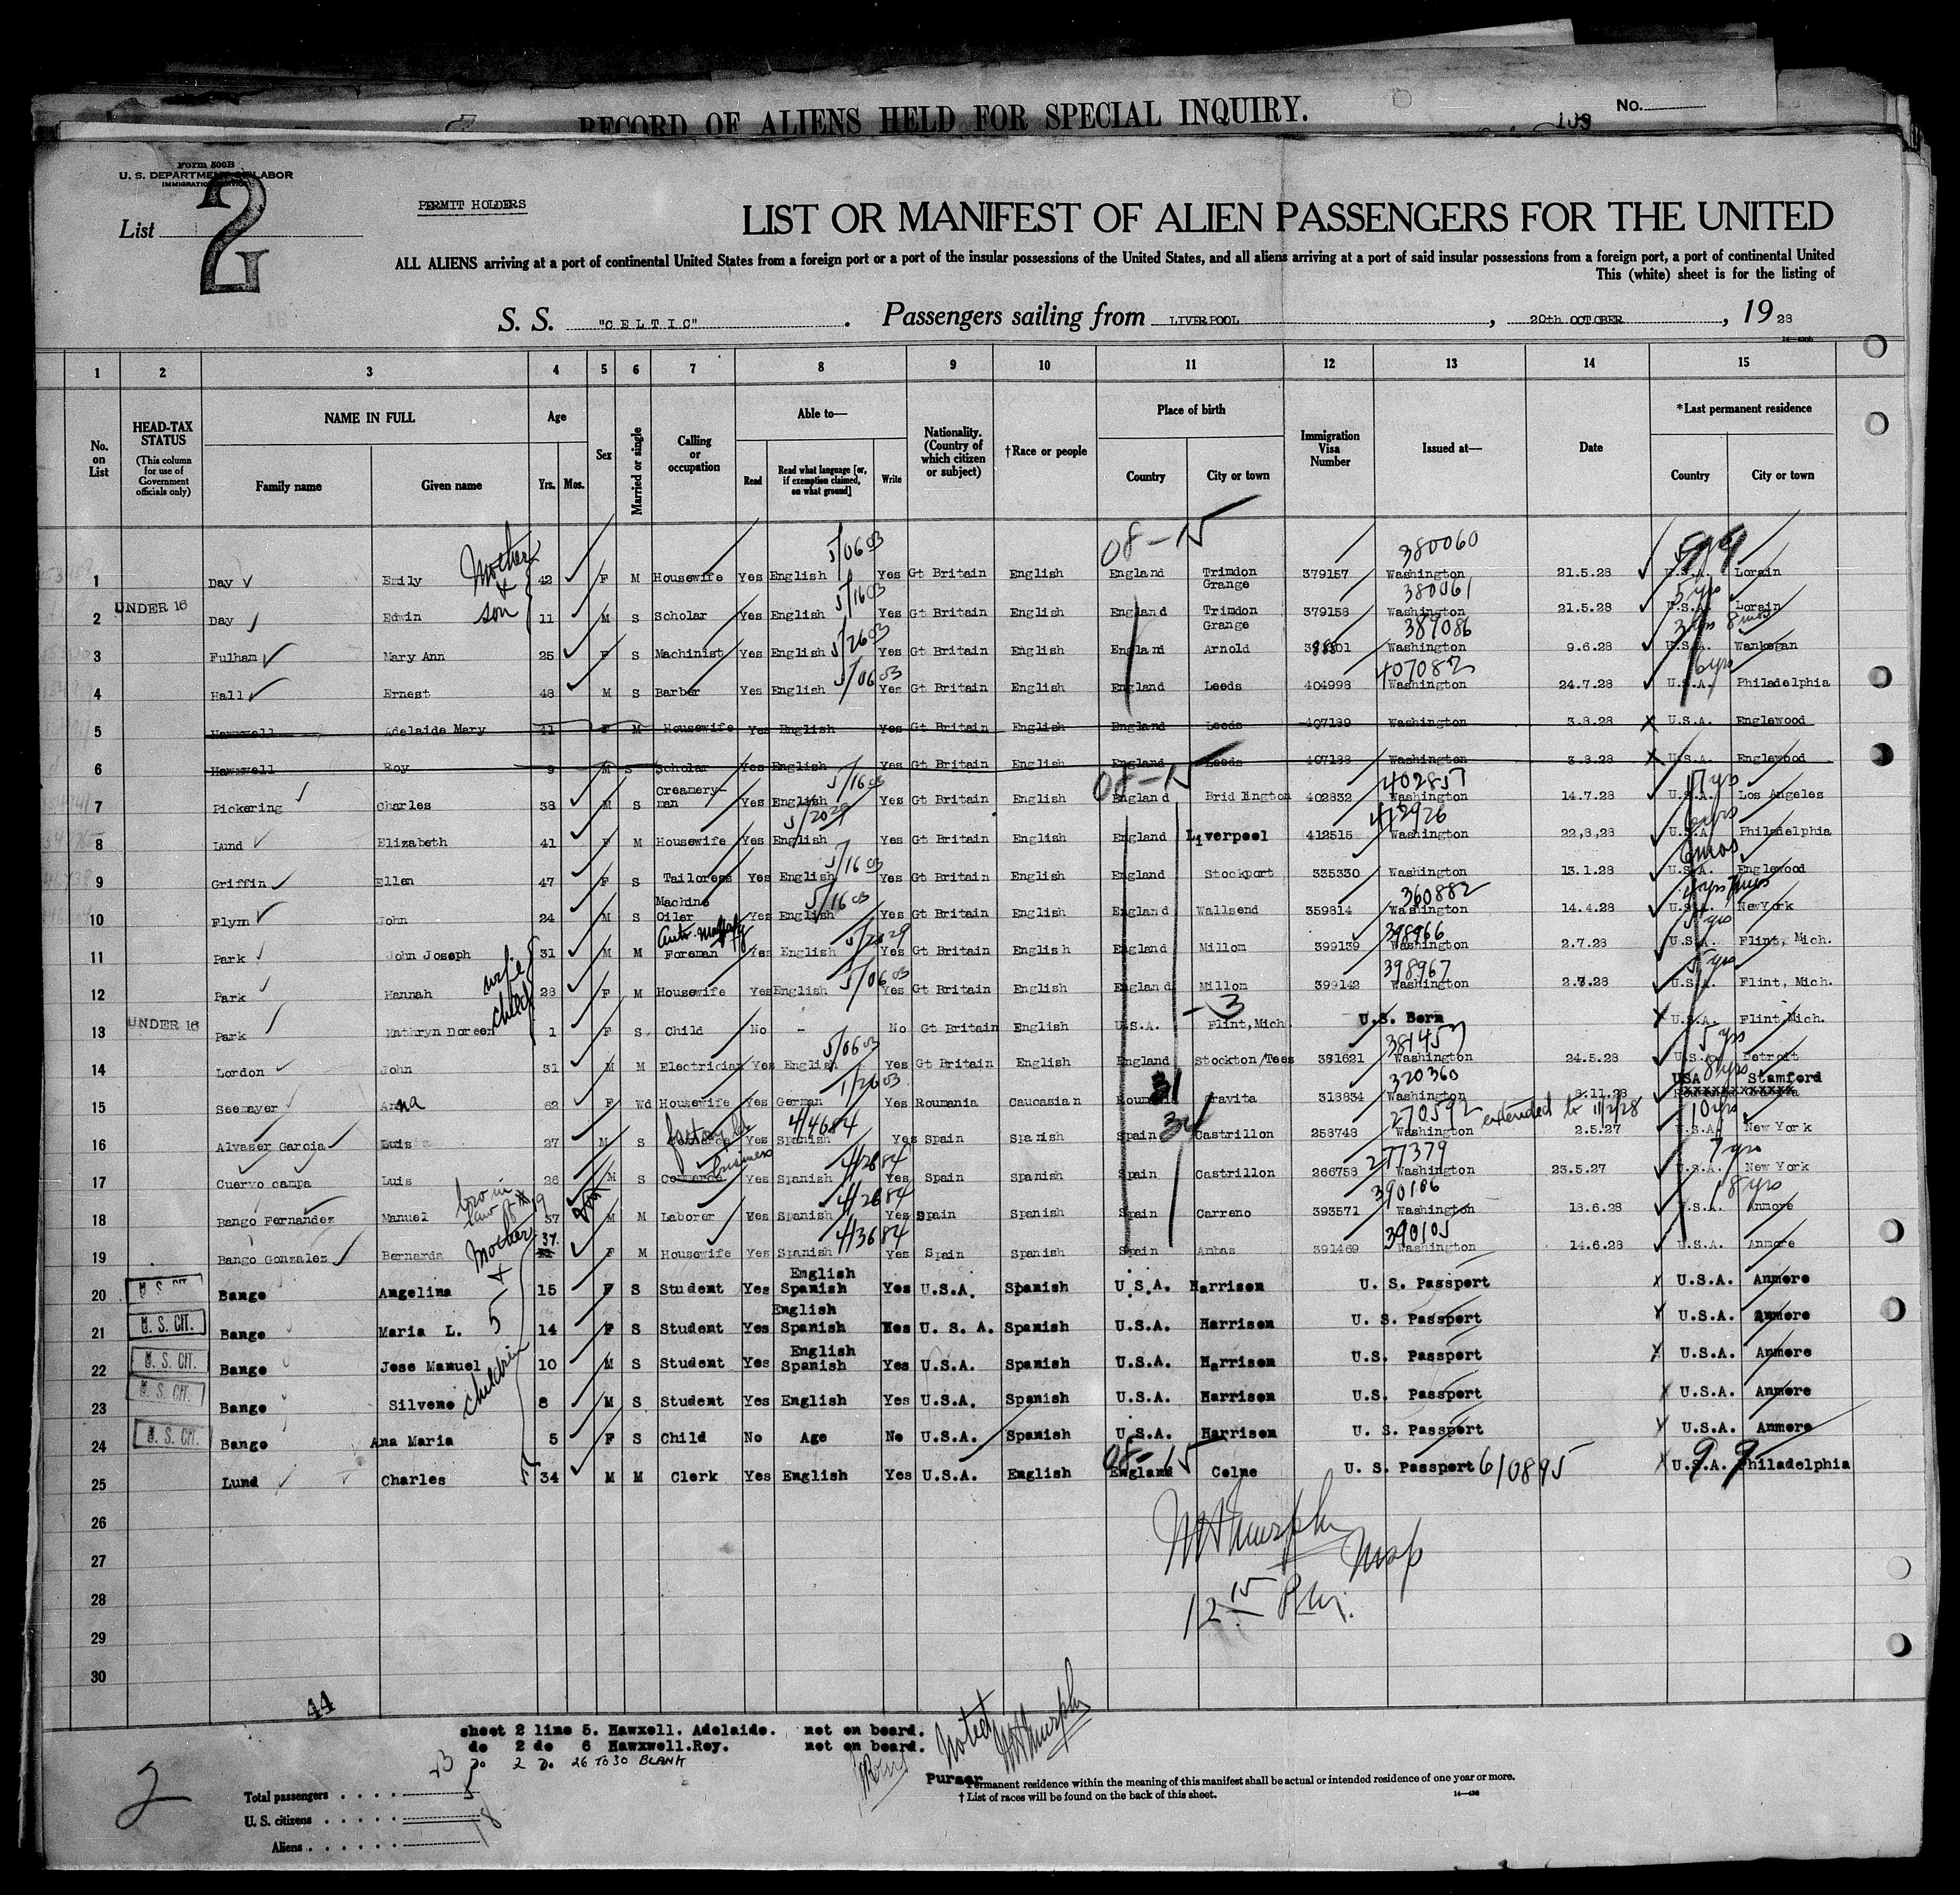 RECORD OF ALIENS HELD FOR SPECIAL INQUIRY.
No.
Form 500B
U. S. DEPARTMENT OF LABOR
IMMIGRATION SERVICE
List 2
PERMIT HOLDERS
LIST OR MANIFEST OF ALIEN PASSENGERS FOR THE UNITED
ALL ALIENS arriving at a port of continental United States from a foreign port or a port of the insular possessions of the United States, and all aliens arriving at a port of said insular possessions from a foreign port, a port of continental United
This (white) sheet is for the listing of
S. S. "CELTIC". Passengers sailing from LIVERPOOL, 20th OCTOBER, 1928
1 2 3 4 5 6 7 8 9 10 11 12 13 14 15
No. on List
HEAD-TAX STATUS (This column for use of Government officials only)
NAME IN FULL Family name Given name
Age Yrs. Mos.
Sex
Married or single
Calling or occupation
Able to— Read Read what language [or, if exemption claimed, on what ground] Write
Nationality. (Country of which citizen or subject)
†Race or people
Place of birth Country City or town
Immigration Visa Number
Issued at—
Date
*Last permanent residence Country City or town
08-15
1 Day Emily Mother & 42 F M Housewife Yes English 5/06 03 Yes Gt Britain English England Trimdon Grange 379157 380060 Washington 21.5.28 U.S.A. Lorain
2 UNDER 16 Day Edwin son 11 M S Scholar Yes English 5/16 03 Yes Gt Britain English England Trimdon Grange 379158 380061 Washington 21.5.28 5 yrs U.S.A. Lorain
3 Fulham Mary Ann 25 F S Machinist Yes English 5/26 03 Yes Gt Britain English England Arnold 387086 Washington 9.6.28 3 yrs 8 mos U.S.A. Wankegan
4 Hall Ernest 48 M S Barber Yes English 5/06 03 Yes Gt Britain English England Leeds 404998 407082 Washington 24.7.28 6 yrs U.S.A. Philadelphia
5 Hawxwell Adelaide Mary 41 F M Housewife Yes English Yes Gt Britain English England Leeds 407189 Washington 3.8.28 X U.S.A. Englewood
6 Hawxwell Roy 9 M S Scholar Yes English Yes Gt Britain English England Leeds 407188 Washington 3.8.28 X U.S.A. Englewood
7 Pickering Charles 38 M S Creamery-man Yes English 5/16 03 Yes Gt Britain English 08-15 England Bridlington 402832 402857 Washington 14.7.28 U.S.A. Los Angeles
8 Lund Elizabeth 41 F M Housewife Yes English 5/20 29 Yes Gt Britain English England Liverpool 412515 412926 Washington 22,8,28 6 yrs U.S.A. Philadelphia
9 Griffin Ellen 47 F S Tailoress Yes English 5/16 03 Yes Gt Britain English England Stockport 335330 Washington 13.1.28 6 mos U.S.A. Englewood
10 Flynn John 24 M S Machine Oiler Yes English 5/16 03 Yes Gt Britain English England Wallsend 359814 360882 Washington 14.4.28 U.S.A. NewYork
11 Park John Joseph 31 M M Foreman Yes English 5/26 29 Yes Gt Britain English England Millom 399139 398966 Washington 2.7.28 5 yrs U.S.A. Flint, Mich.
12 Park Hannah wife & 28 F M Housewife Yes English 5/06 03 Yes Gt Britain English England Millom 399142 398967 Washington 2.7.28 5 yrs U.S.A. Flint, Mich.
13 UNDER 16 Park Mathryn Doreen child 1 F S Child No - No Gt Britain English U.S.A. - 3 Flint, Mich. U.S. Born X U.S.A. Flint Mich.
14 Lordon John 31 M M Electrician Yes English 5/06 03 Yes Gt Britain English England Stockton/Tees 381621 381457 Washington 24.5.28 5 yrs U.S.A. Detroit
15 Seemayer Anna 62 F Wd Housewife Yes German 1/26 03 Yes Roumania Caucasian Roumania 31 Oravita 318834 320360 Washington 8.11.28 8 yrs USA Stamford
16 Alvaser Garcia Luis 27 M S Yes Spanish 4/46 84 Yes Spain Spanish Spain Castrillon 258748 270592 Washington extended to 11/2/28 2.5.27 10 yrs U.S.A. New York
17 Cuervo campa Luis 26 M S Commerce business Yes Spanish 4/26 84 Yes Spain Spanish Spain Castrillon 266758 277379 Washington 23.5.27 7 yrs U.S.A. New York
18 Bango Fernandez Manuel bro in law of # 19 37 M M Laborer Yes Spanish 4/26 84 Yes Spain Spanish Spain Carreno 393571 390106 Washington 18.6.28 18 yrs U.S.A. Anmore
19 Bango Gonzalez Bernarda Mother & 37 F M Housewife Yes Spanish 4/36 84 Yes Spain Spanish Spain Ambas 391469 390105 Washington 14.6.28 U.S.A. Anmore
20 U. S. CIT. Bango Angelina 15 F S Student Yes English Spanish Yes U.S.A. Spanish U.S.A. Harrison U. S. Passport X U.S.A. Anmore
21 U. S. CIT. Bango Maria L. 5 14 F S Student Yes English Spanish Yes U. S. A. Spanish U.S.A. Harrison U. S. Passport X U.S.A. Anmore
22 U. S. CIT. Bango Jose Manuel children 10 M S Student Yes English Spanish Yes U.S.A. Spanish U.S.A. Harrison U.S. Passport X U.S.A. Anmore
23 U. S. CIT. Bango Silveno 8 M S Student Yes English Yes U.S.A. Spanish U.S.A. Harrison U.S. Passport X U.S.A. Anmore
24 U. S. CIT. Bango Ana Maria 5 F S Child No Age No U.S.A. Spanish U.S.A. Harrison U. S. Passport X U.S.A. Anmore
25 Lund Charles 34 M M Clerk Yes English Yes U.S.A. English 08-15 England Colne U. S. Passport 610895 X U.S.A. 99 Philadelphia
26
27
28
29
30
12 15 P.M.
44
sheet 2 line 5. Hawxell. Adelaide. not on board.
do 2 do 6 Hawxwell.Roy. not on board.
Do 2 Do. 26 TO 30 BLANK
Noted
Purser
2
Total passengers 23
U. S. citizens 5
Aliens 18
Permanent residence within the meaning of this manifest shall be actual or intended residence of one year or more.
† List of races will be found on the back of this sheet.